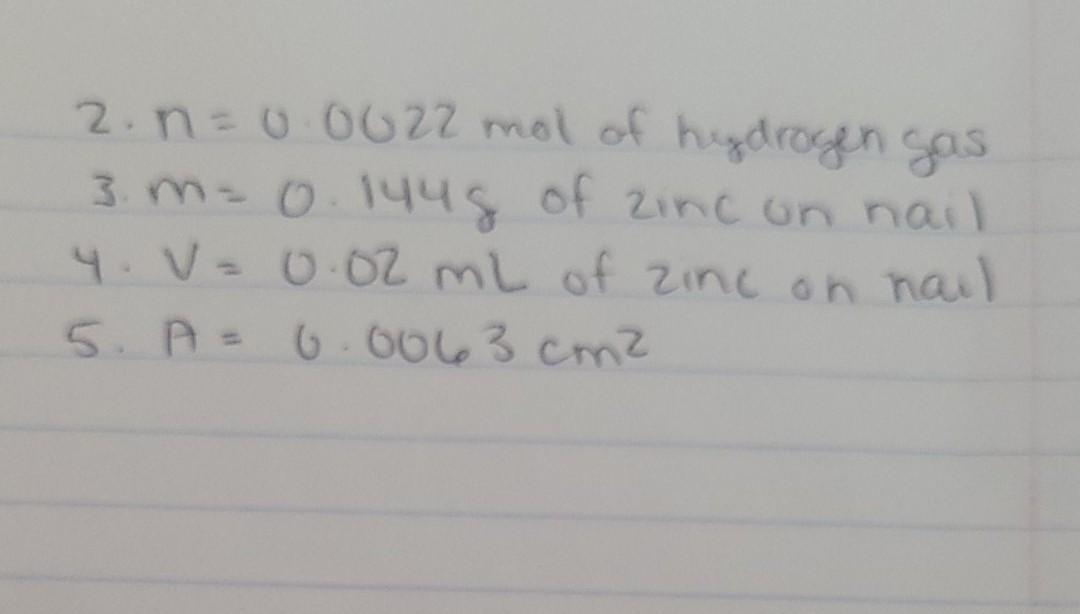 2. n = 0.0022 mol of hydrogen gas
3. m = 0.144g of zinc on nail
4. V = 0.02 mL of zinc on nail
5. A = 0.0063 cm2